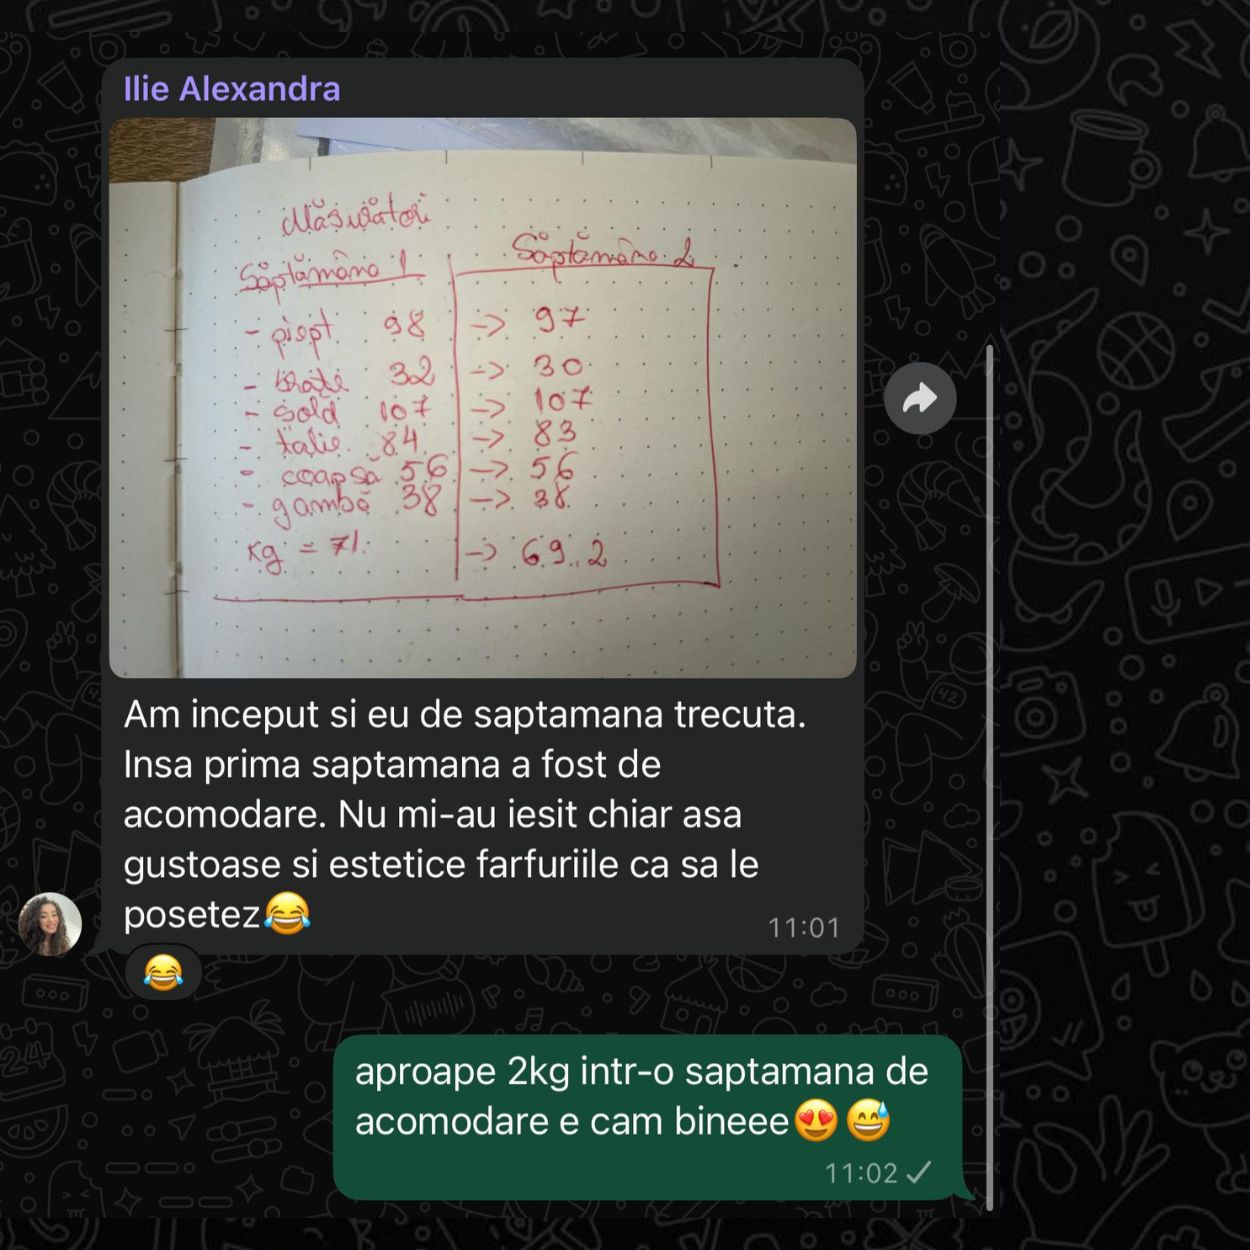 Ilie Alexandra
Măsurători
Săptămâna 1
Săptămâna 2
- piept 98 -> 97
- brațe 32 -> 30
- șold 107 -> 107
- talie 84 -> 83
- coapsă 56 -> 56
- gambă 38 -> 38
Kg = 71 -> 69.2
Am inceput si eu de saptamana trecuta.
Insa prima saptamana a fost de
acomodare. Nu mi-au iesit chiar asa
gustoase si estetice farfuriile ca sa le
posetez😂
11:01
😂
aproape 2kg intr-o saptamana de
acomodare e cam bineee😍😅
11:02